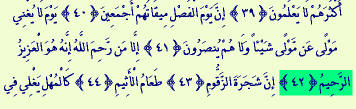 أَكْثَرَهُمْ لَا يَعْلَمُونَ ﴿٣٩﴾ إِنَّ يَوْمَ الْفَصْلِ مِيقَاتُهُمْ أَجْمَعِينَ ﴿٤٠﴾ يَوْمَ لَا يُغْنِي
مَوْلًى عَن مَّوْلًى شَيْئًا وَلَا هُمْ يُنصَرُونَ ﴿٤١﴾ إِلَّا مَن رَّحِمَ اللَّهُ إِنَّهُ هُوَ الْعَزِيزُ
الرَّحِيمُ ﴿٤٢﴾ إِنَّ شَجَرَةَ الزَّقُّومِ ﴿٤٣﴾ طَعَامُ الْأَثِيمِ ﴿٤٤﴾ كَالْمُهْلِ يَغْلِي فِي